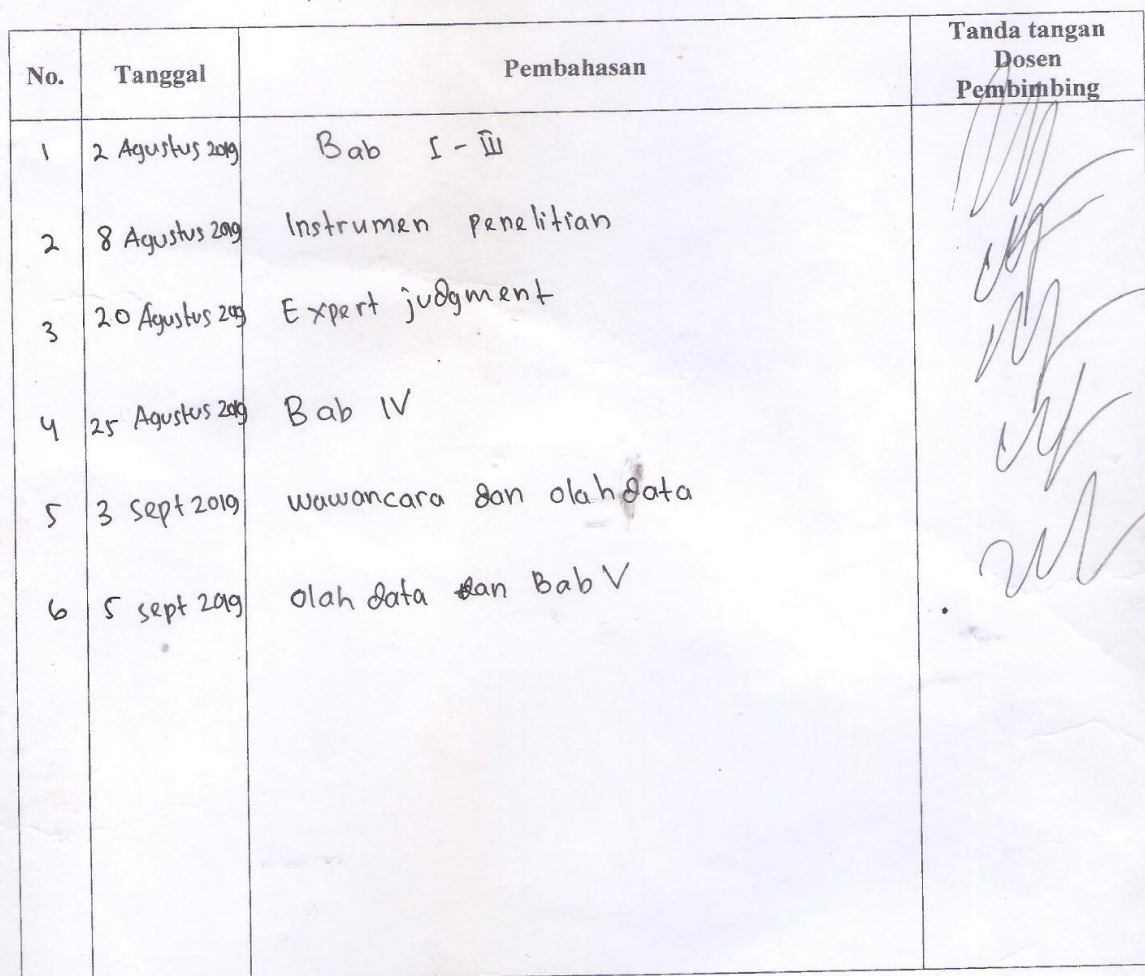 No. Tanggal Pembahasan Tanda tangan
Dosen
Pembimbing
1 2 Agustus 2019 Bab I - III
2 8 Agustus 2019 Instrumen penelitian
3 20 Agustus 2019 Expert judgment
4 25 Agustus 2019 Bab IV
5 3 sept 2019 wawancara dan olah data
6 5 sept 2019 olah data dan Bab V